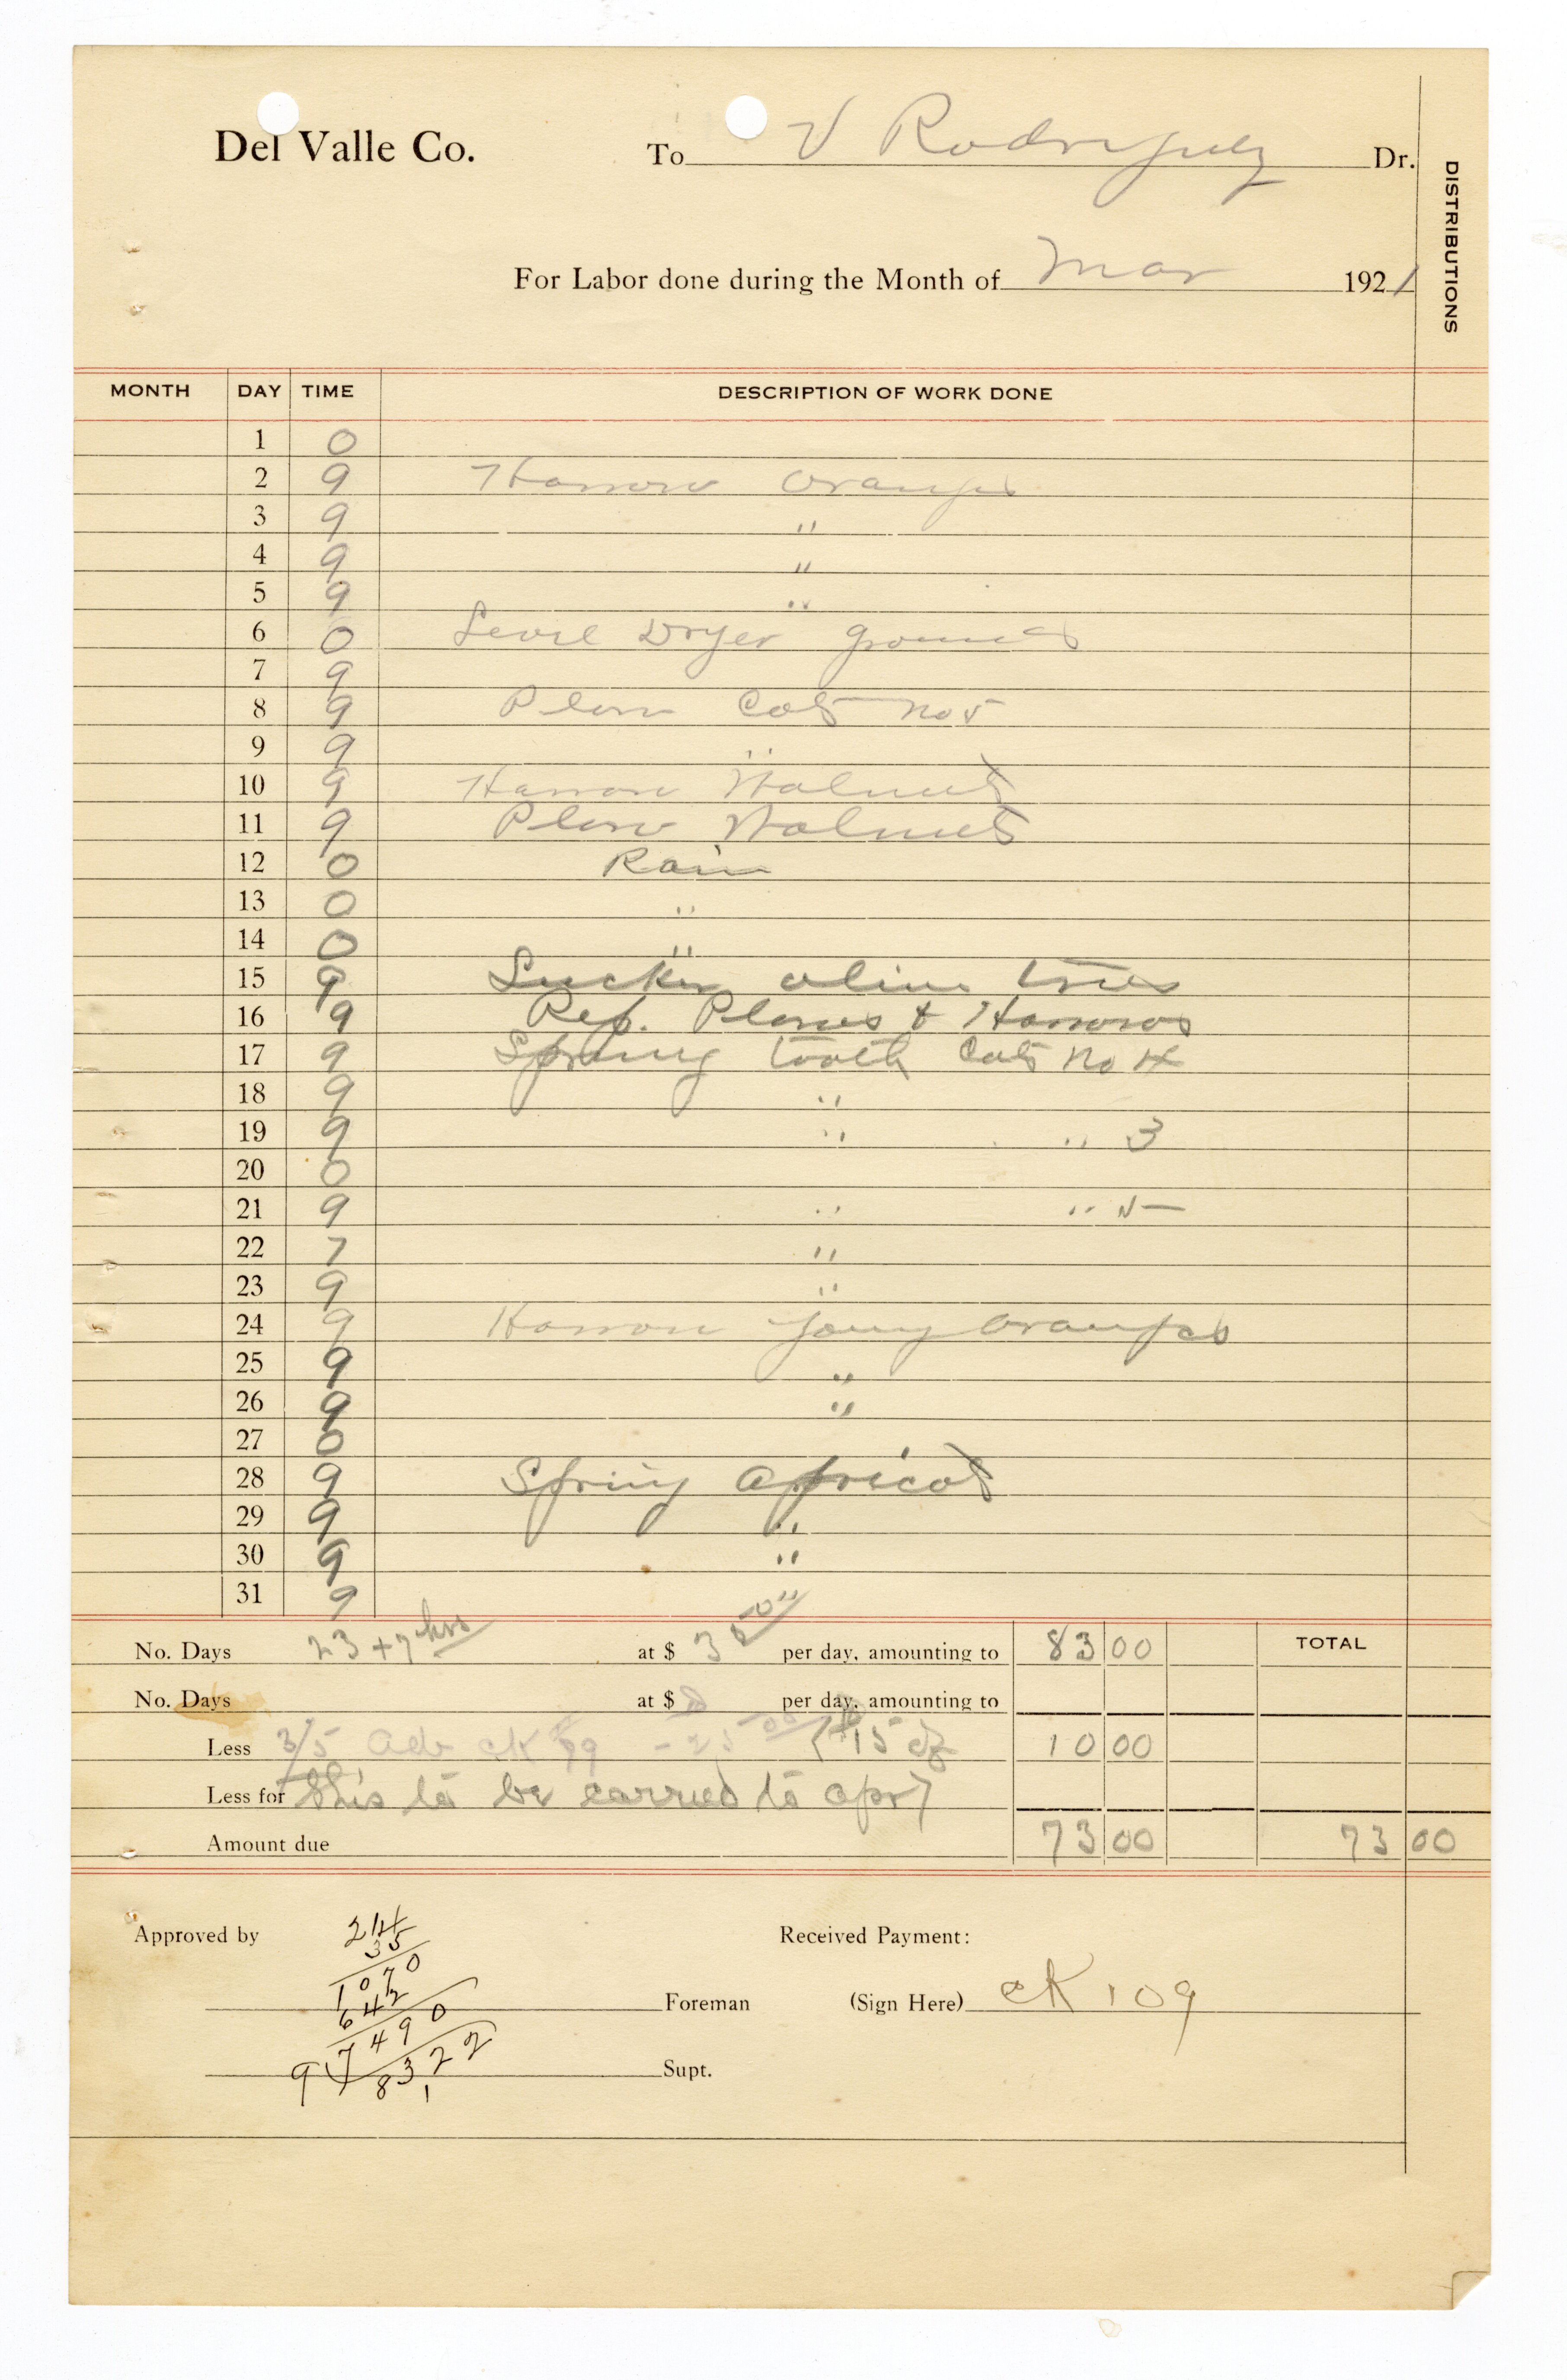 Del Valle Co. To V Rodriguez Dr.
DISTRIBUTIONS
For Labor done during the Month of Mar 1921
MONTH DAY TIME DESCRIPTION OF WORK DONE
1 0
2 9 Harrow Oranges
3 9 "
4 9 "
5 9 "
6 0 Level Dryer grounds
7 9
8 9 Plow Cots No 5
9 9 "
10 9 Harrow Walnuts
11 9 Plow Walnuts
12 0 Rain
13 0 "
14 0 "
15 9 Sucker olive trees
16 9 Rep. Plows & Harrows
17 9 Spring tooth Cots No 4
18 9 "
19 9 " " 3
20 0
21 9 " "
22 7 "
23 9 "
24 9 Harrow young Oranges
25 9 "
26 9 "
27 0
28 9 Spring apricots
29 9 "
30 9 "
31 9
No. Days 23 + 7 hrs at $ 3 50 per day, amounting to 83 00 TOTAL
No. Days at $ per day, amounting to
Less 3/5 Adv ck 99 - 25 00 15 10 00
Less for this to be carried to apr
Amount due 73 00 73 00
Approved by Received Payment:
214
35
1070
642
Foreman (Sign Here) ck 109
7490
9 8322
Supt.
1